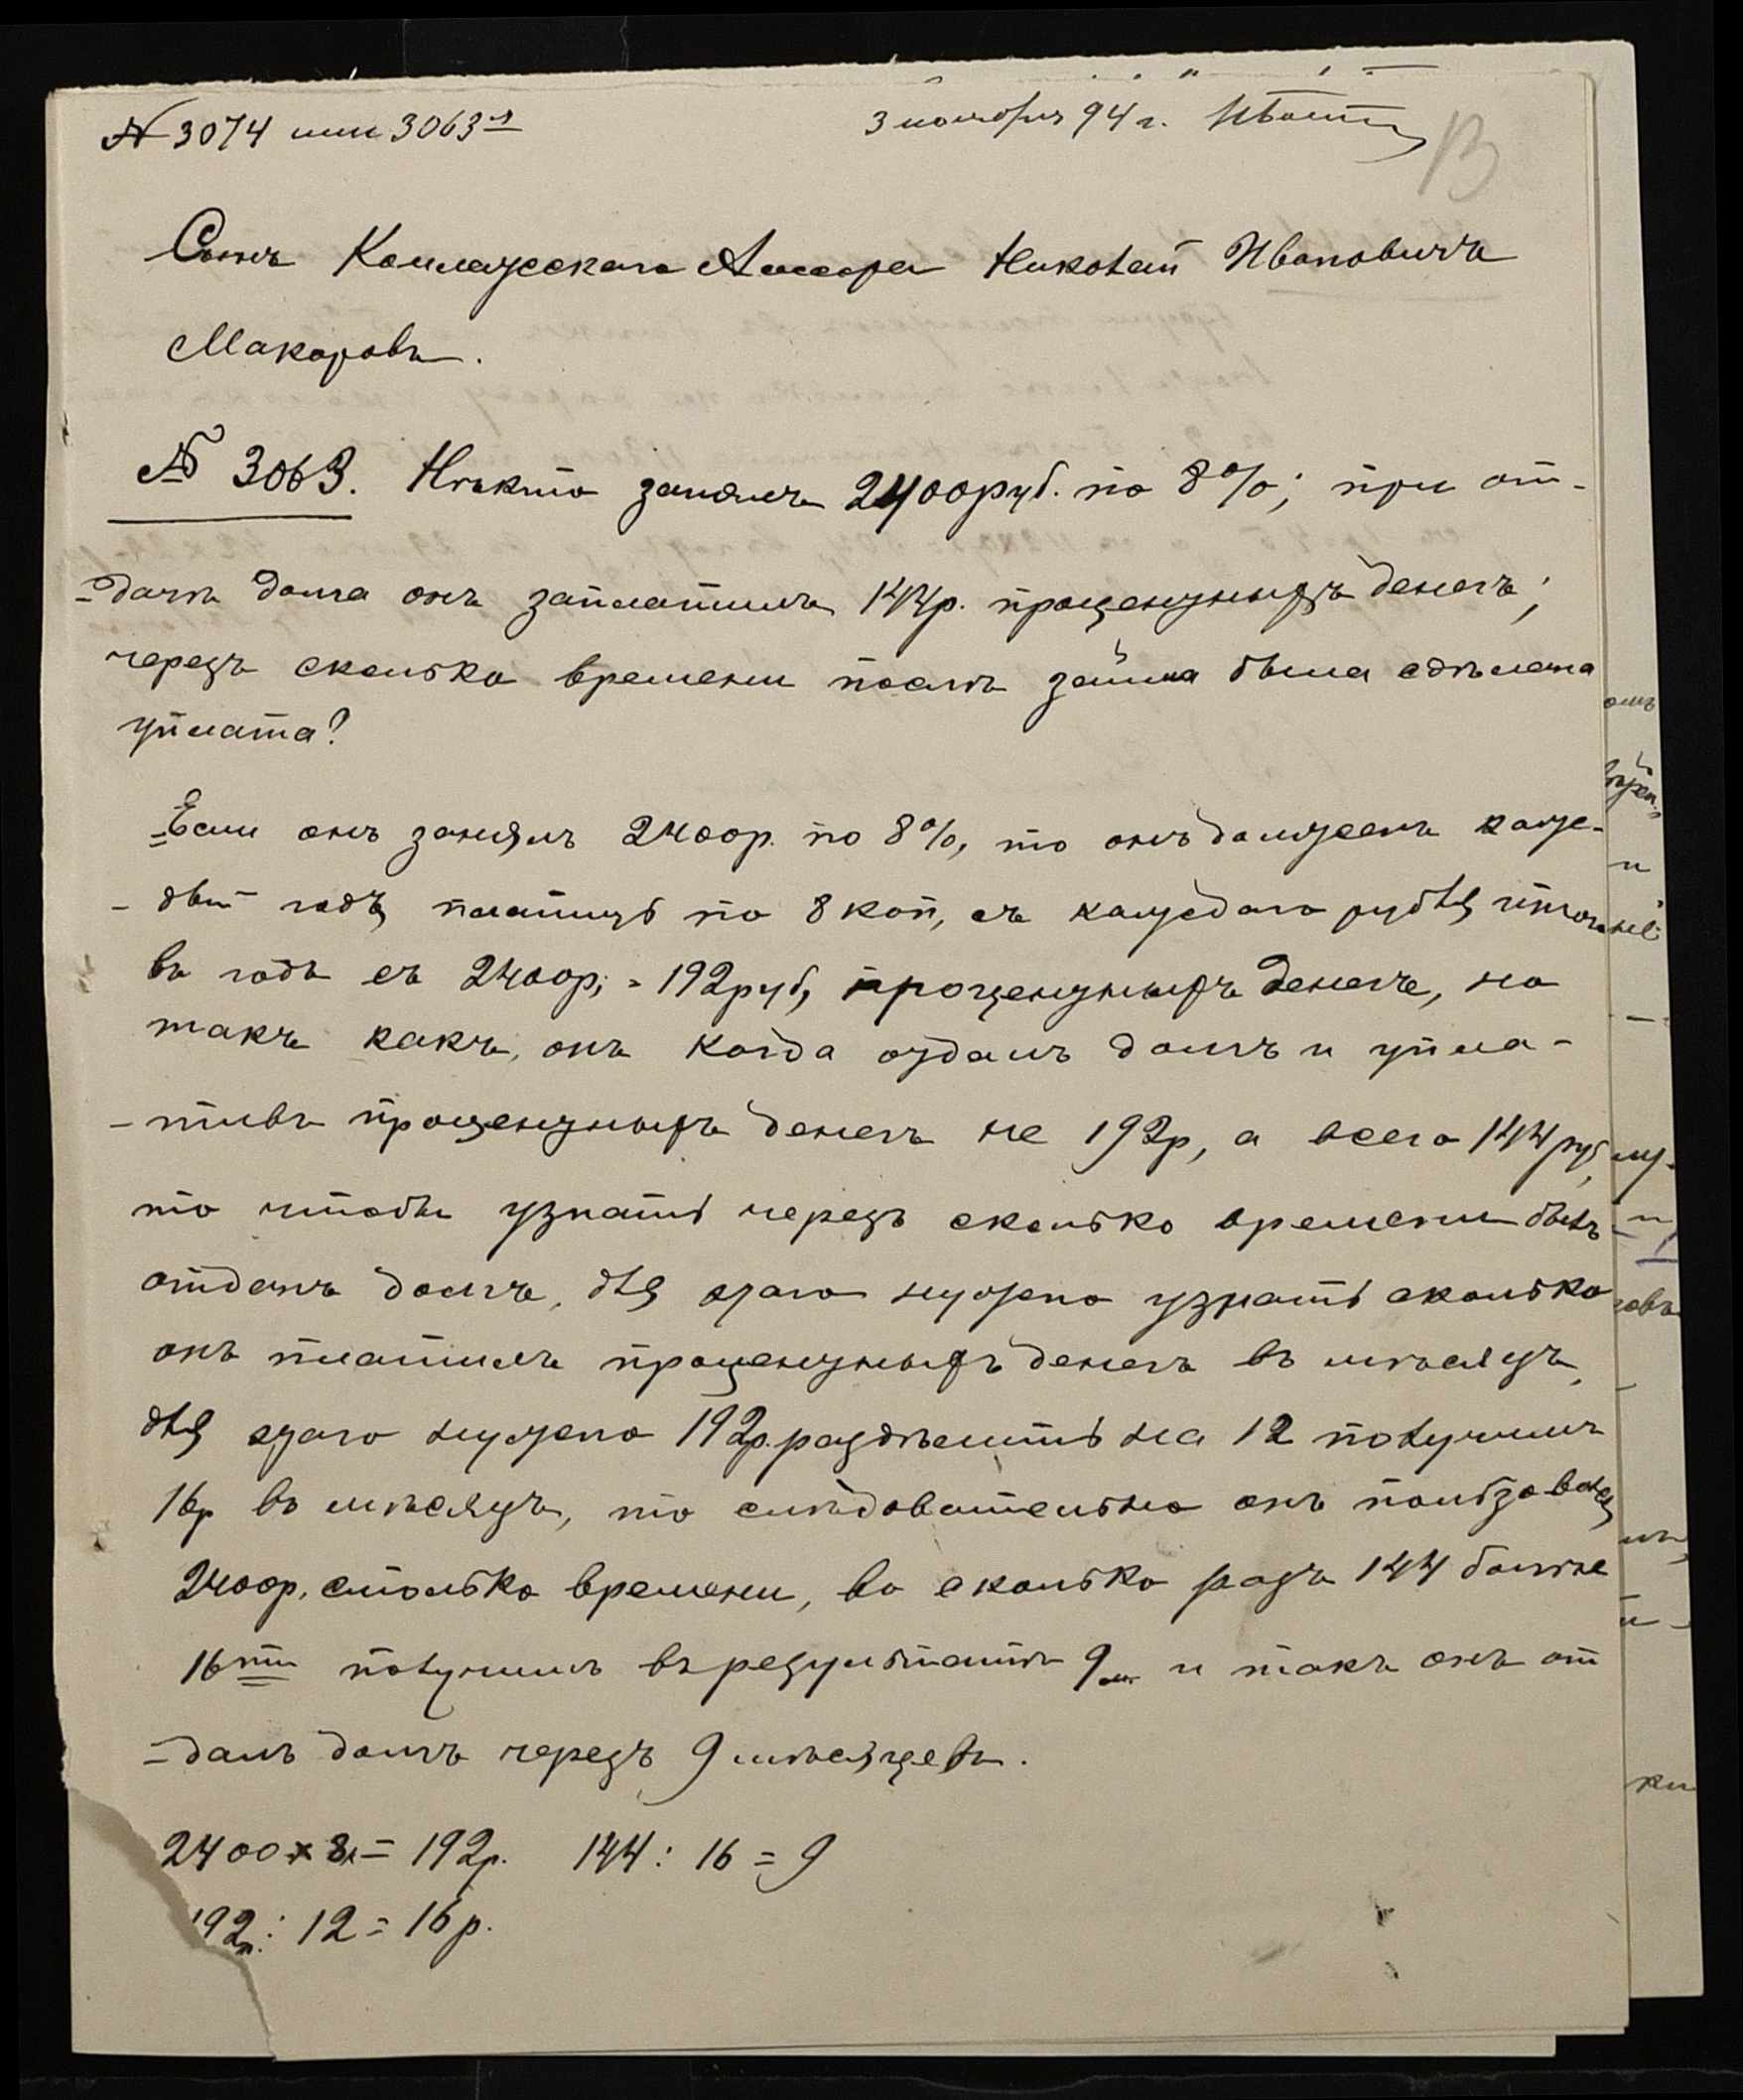 № 3074 или 3063й
3 ноября 94 г.
13
Сынъ Коллежскаго Ассесора Николай Ивановичъ
Макаровъ.
№ 3063. Нѣкто занялъ 2400 руб. по 8%; при от-
-дачѣ долга онъ заплатилъ 144р. процентныхъ денегъ;
черезъ сколько времени послѣ займа была сдѣлана
уплата?
Если онъ занялъ 2400р. по 8%, то онъ долженъ каж-
-дый годъ платить по 8 коп, съ каждаго рубля итого
въ годъ съ 2400р; = 192руб, процентныхъ денегъ, но
такъ какъ, онъ когда отдалъ долгъ и упла-
-тивъ процентныхъ денегъ не 192р, а всего 144 руб,
то чтобы узнать черезъ сколько времени былъ
отданъ долгъ, для этаго нужно узнать сколько
онъ платилъ процентныхъ денегъ въ мѣсяцъ,
для этаго нужно 192р. раздѣлить на 12 получимъ
16р въ мѣсяцъ, то слѣдовательно онъ пользовался
2400р. столько времени, во сколько разъ 144 болѣе
16ти получимъ въ результатѣ 9 м. и такъ онъ от
-далъ долгъ черезъ 9 мѣсяцевъ.
2400 x 8к = 192р. 144 : 16 = 9
192р. : 12 = 16 р.